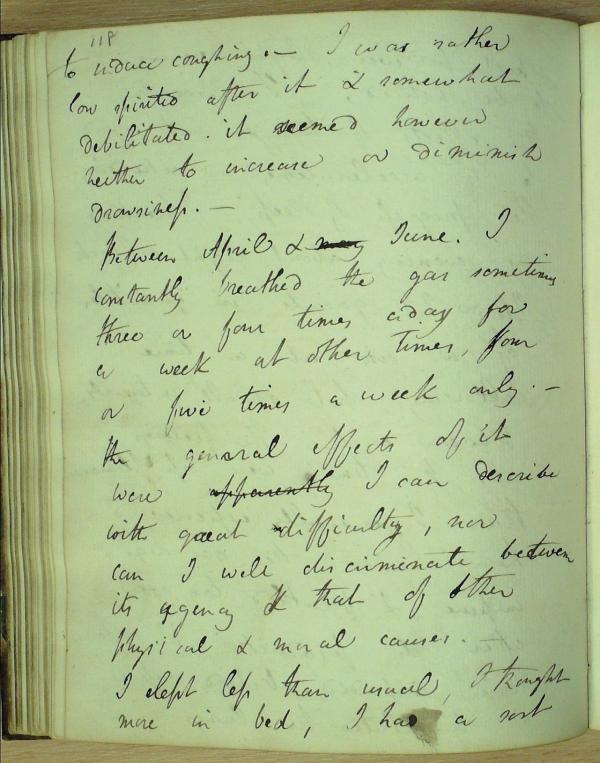 118
to induce coughing. — I was rather
low spirited after it & somewhat
debilitated. it seemed however
neither to increase or diminish
drowsiness. —
Between April & may June. I
constantly breathed the gas sometimes
three or four times a day for
a week at other times, four
or five times a week only. —
the general effects of it
were apparently I can describe
with great difficulty, nor
can I well discriminate between
its agency & that of other
physical & moral causes. —
I slept less than usual, I thought
more in bed, I had a sort